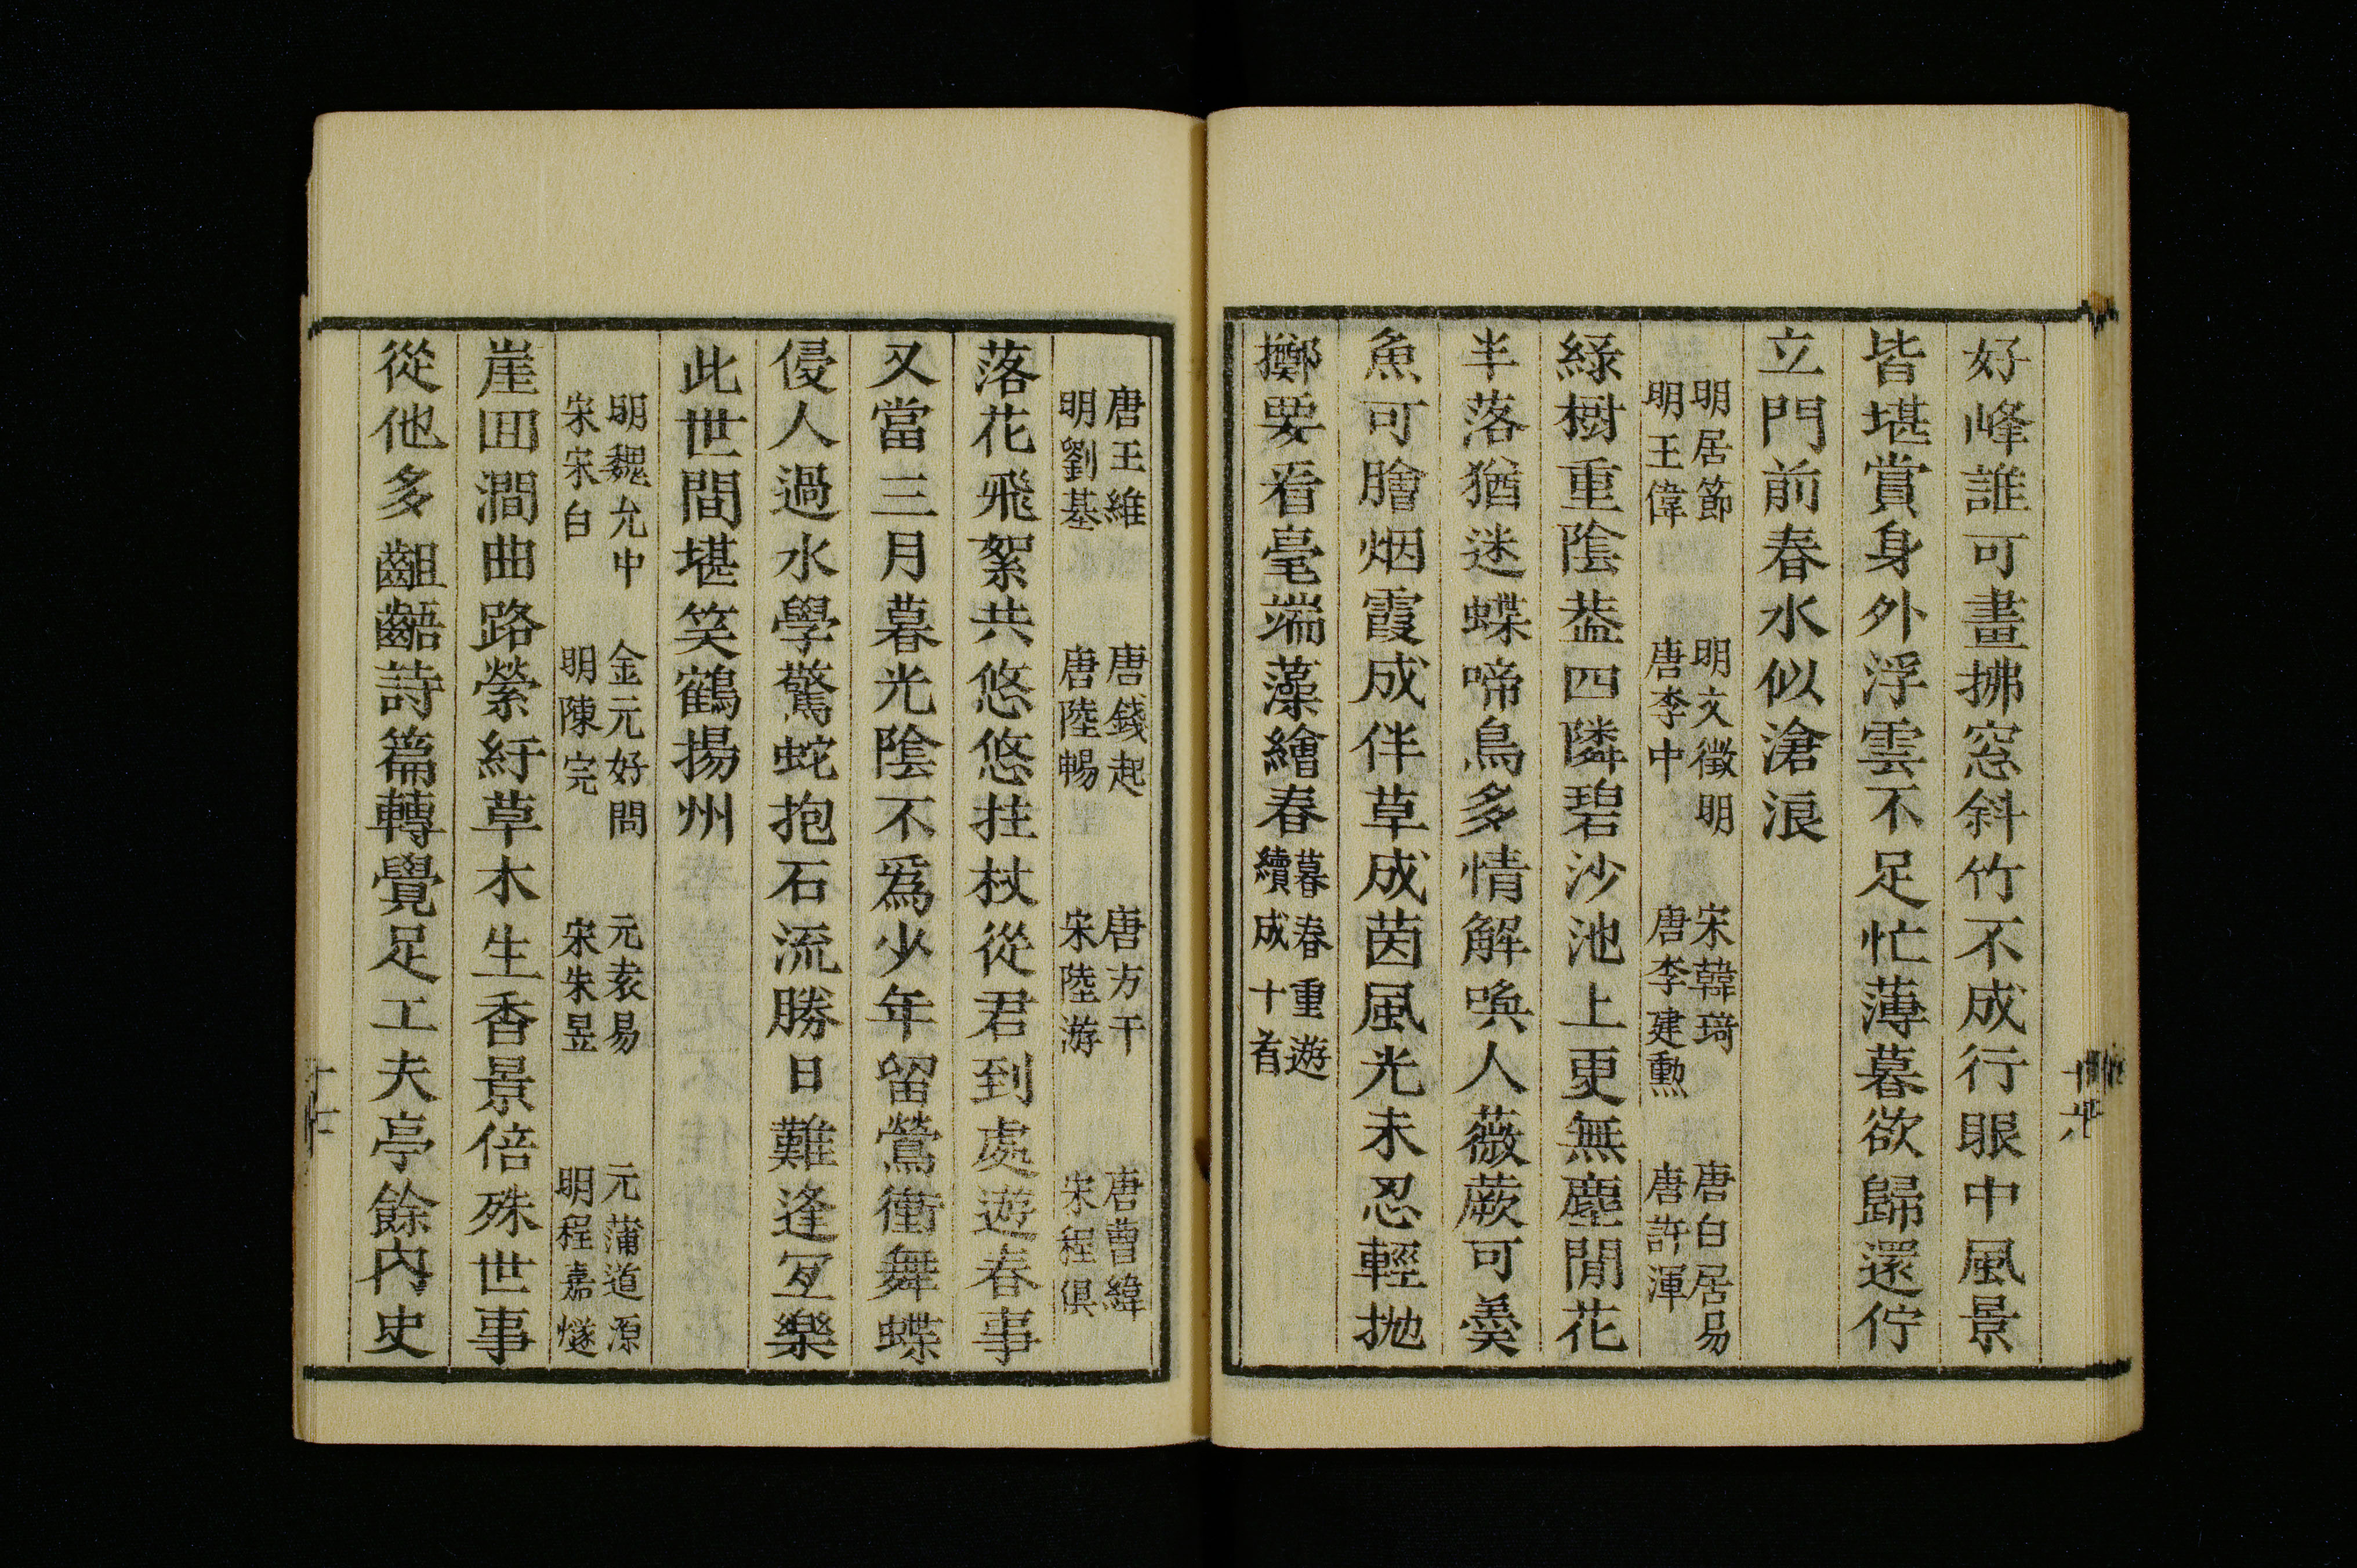 好峰誰可畫拂窓斜竹不成行眼中風景
皆堪賞身外浮雲不足忙薄暮欲歸還佇
立門前春水似滄浪
明居節 明文徵明 宋韓琦 唐白居易
明王偉 唐李中 唐李建勲 唐許渾
綠樹重陰葢四隣碧沙池上更無塵閒花
半落猶迷蝶啼鳥多情解喚人薇蕨可羹
魚可膾烟霞成伴草成茵風光未忍輕抛
擲要看毫端藻繪春
暮春重遊
續成十首
唐王維 唐錢起 唐方干 唐曹緯
明劉基 唐陸暢 宋陸游 宋程俱
落花飛絮共悠悠拄杖從君到處遊春事
又當三月暮光陰不爲少年留鶯衝舞蝶
侵人過水學驚蛇抱石流勝日難逢亙樂
此世間堪笑鶴揚州
明魏允中 金元好問 元袁易 元蒲道源
宋宋白 明陳完 宋朱昱 明程嘉燧
崖回澗曲路縈紆草木生香景倍殊世事
從他多齟齬詩篇轉覺足工夫亭餘內史